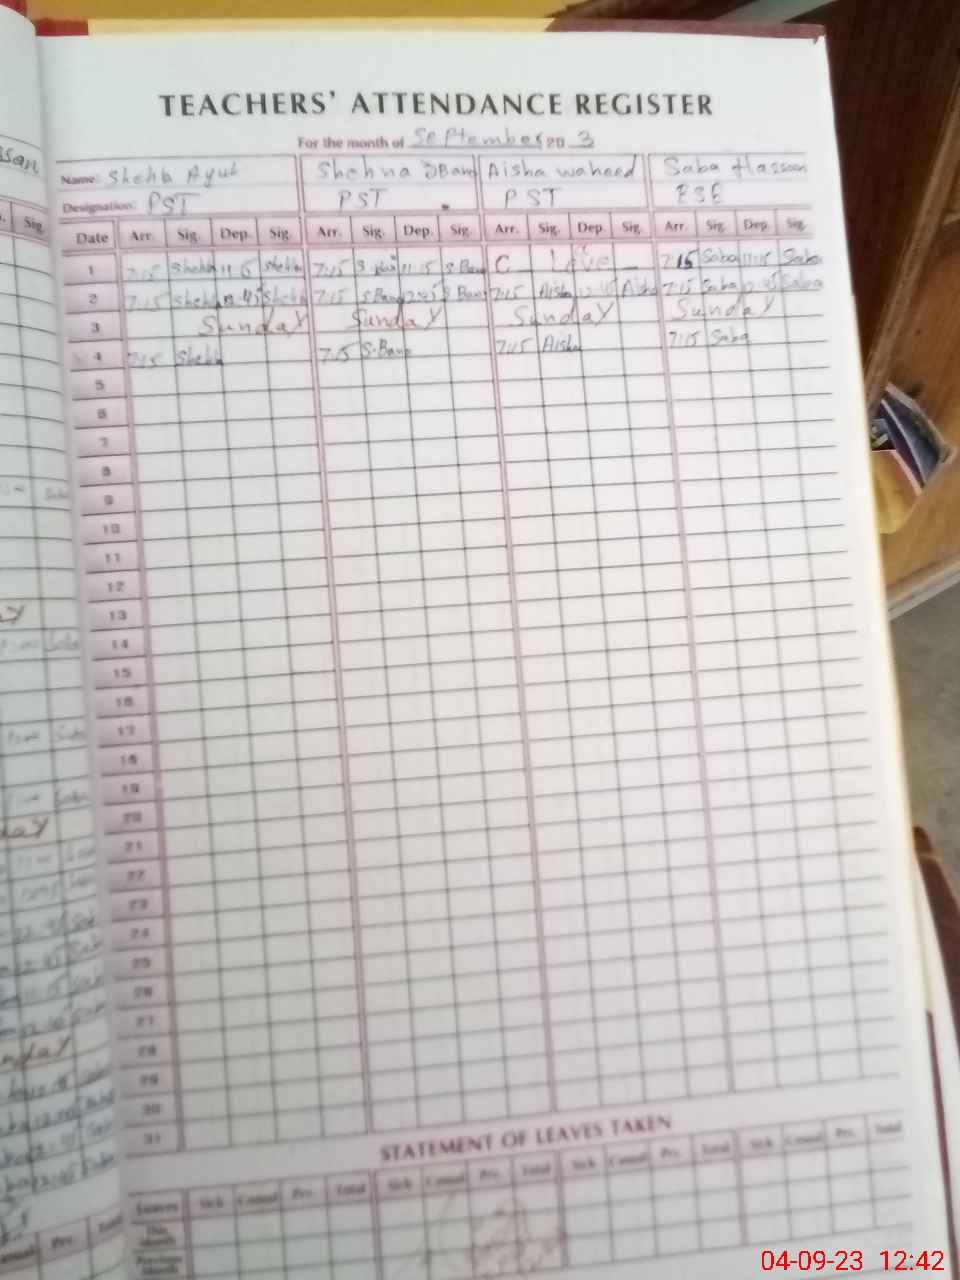 TEACHERS' ATTENDANCE REGISTER
For the month of September 20 3
Name: Shehla Ayub Shehna Bano Aisha waheed Saba Hassan
Designation: PST PST PST ESE
Date Arr. Sig. Dep. Sig. Arr. Sig. Dep. Sig. Arr. Sig. Dep. Sig. Arr. Sig. Dep. Sig.
1 7:15 Shehla 11:15 Shehla 7:15 11:15 S Bano C Leave 7:15 Saba 11:15 Saba
2 7:15 Shehla 12:45 Shehla 7:15 S Bano 12:45 S Bano 7:15 Aisha 12:45 Aisha 7:15 Saba 12:45 Saba
3 Sunday Sunday Sunday Sunday
4 7:15 Shehla 7:15 S.Bano 7:15 Aisha 7:15 Saba
5
6
7
8
9
10
11
12
13
14
15
16
17
18
19
20
21
22
23
24
25
26
27
28
29
30
31
STATEMENT OF LEAVES TAKEN
Leaves Sick Casual Prv. Total Sick Casual Prv. Total Sick Casual Prv. Total Sick Casual Prv. Total
This Month
Previous Month
04-09-23 12:42